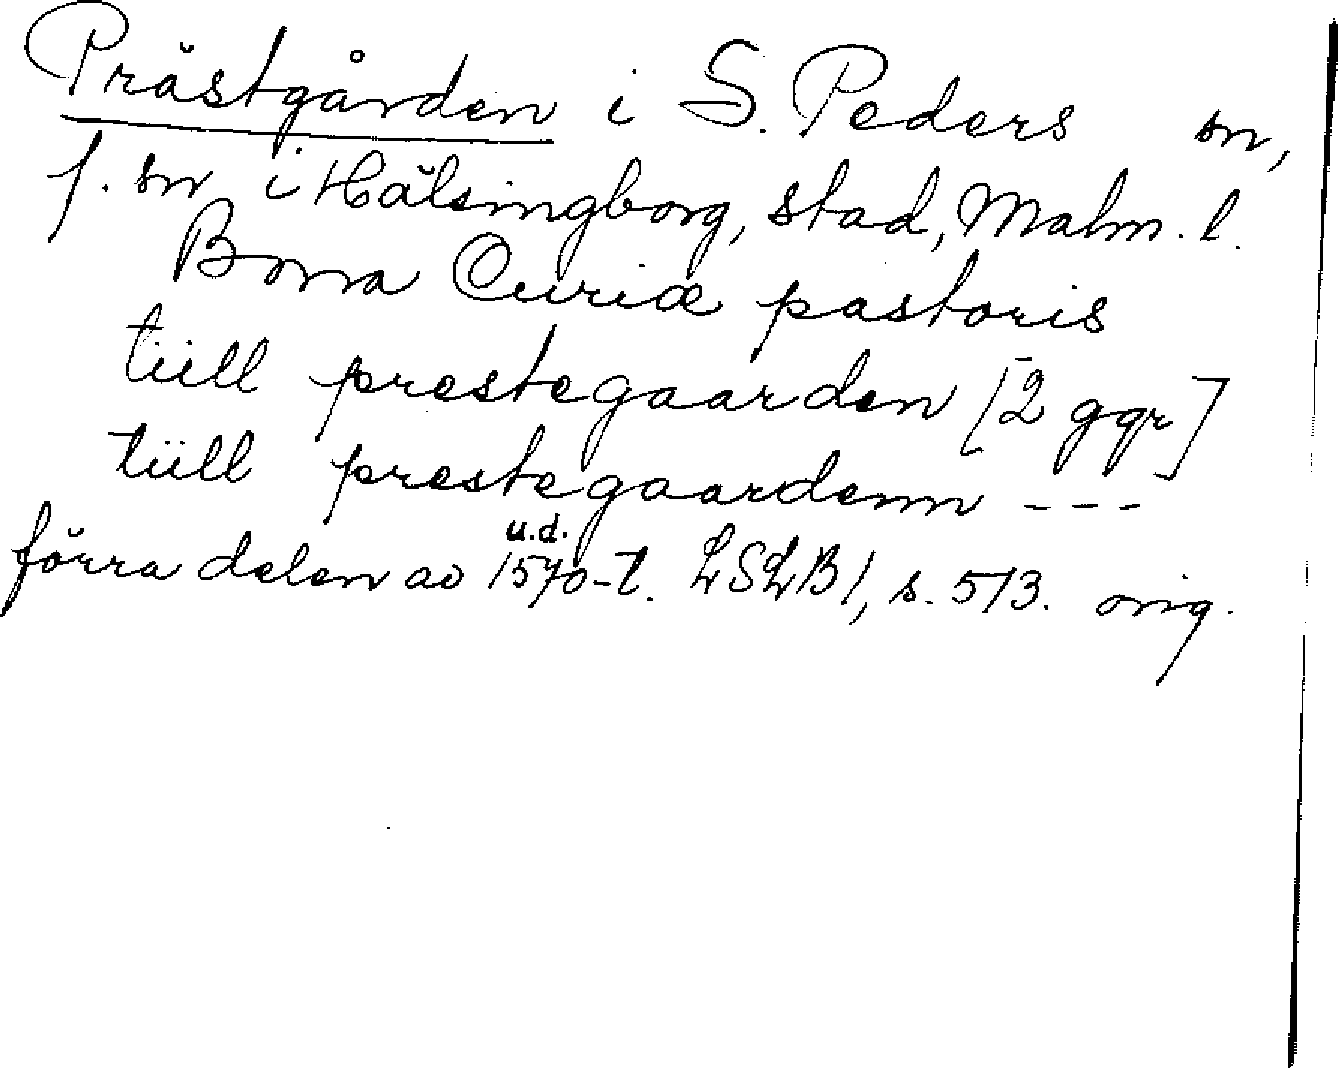 Prästgården i S. Peders sn,
f. sn i Hälsingborg, stad, Malm. l.
Bona Curiæ pastoris
tiill prestegaarden [2 ggr]
tiill prestegaardenn ---
u.d.
förra delen av 1570-t. LSLB1, s. 513. orig.